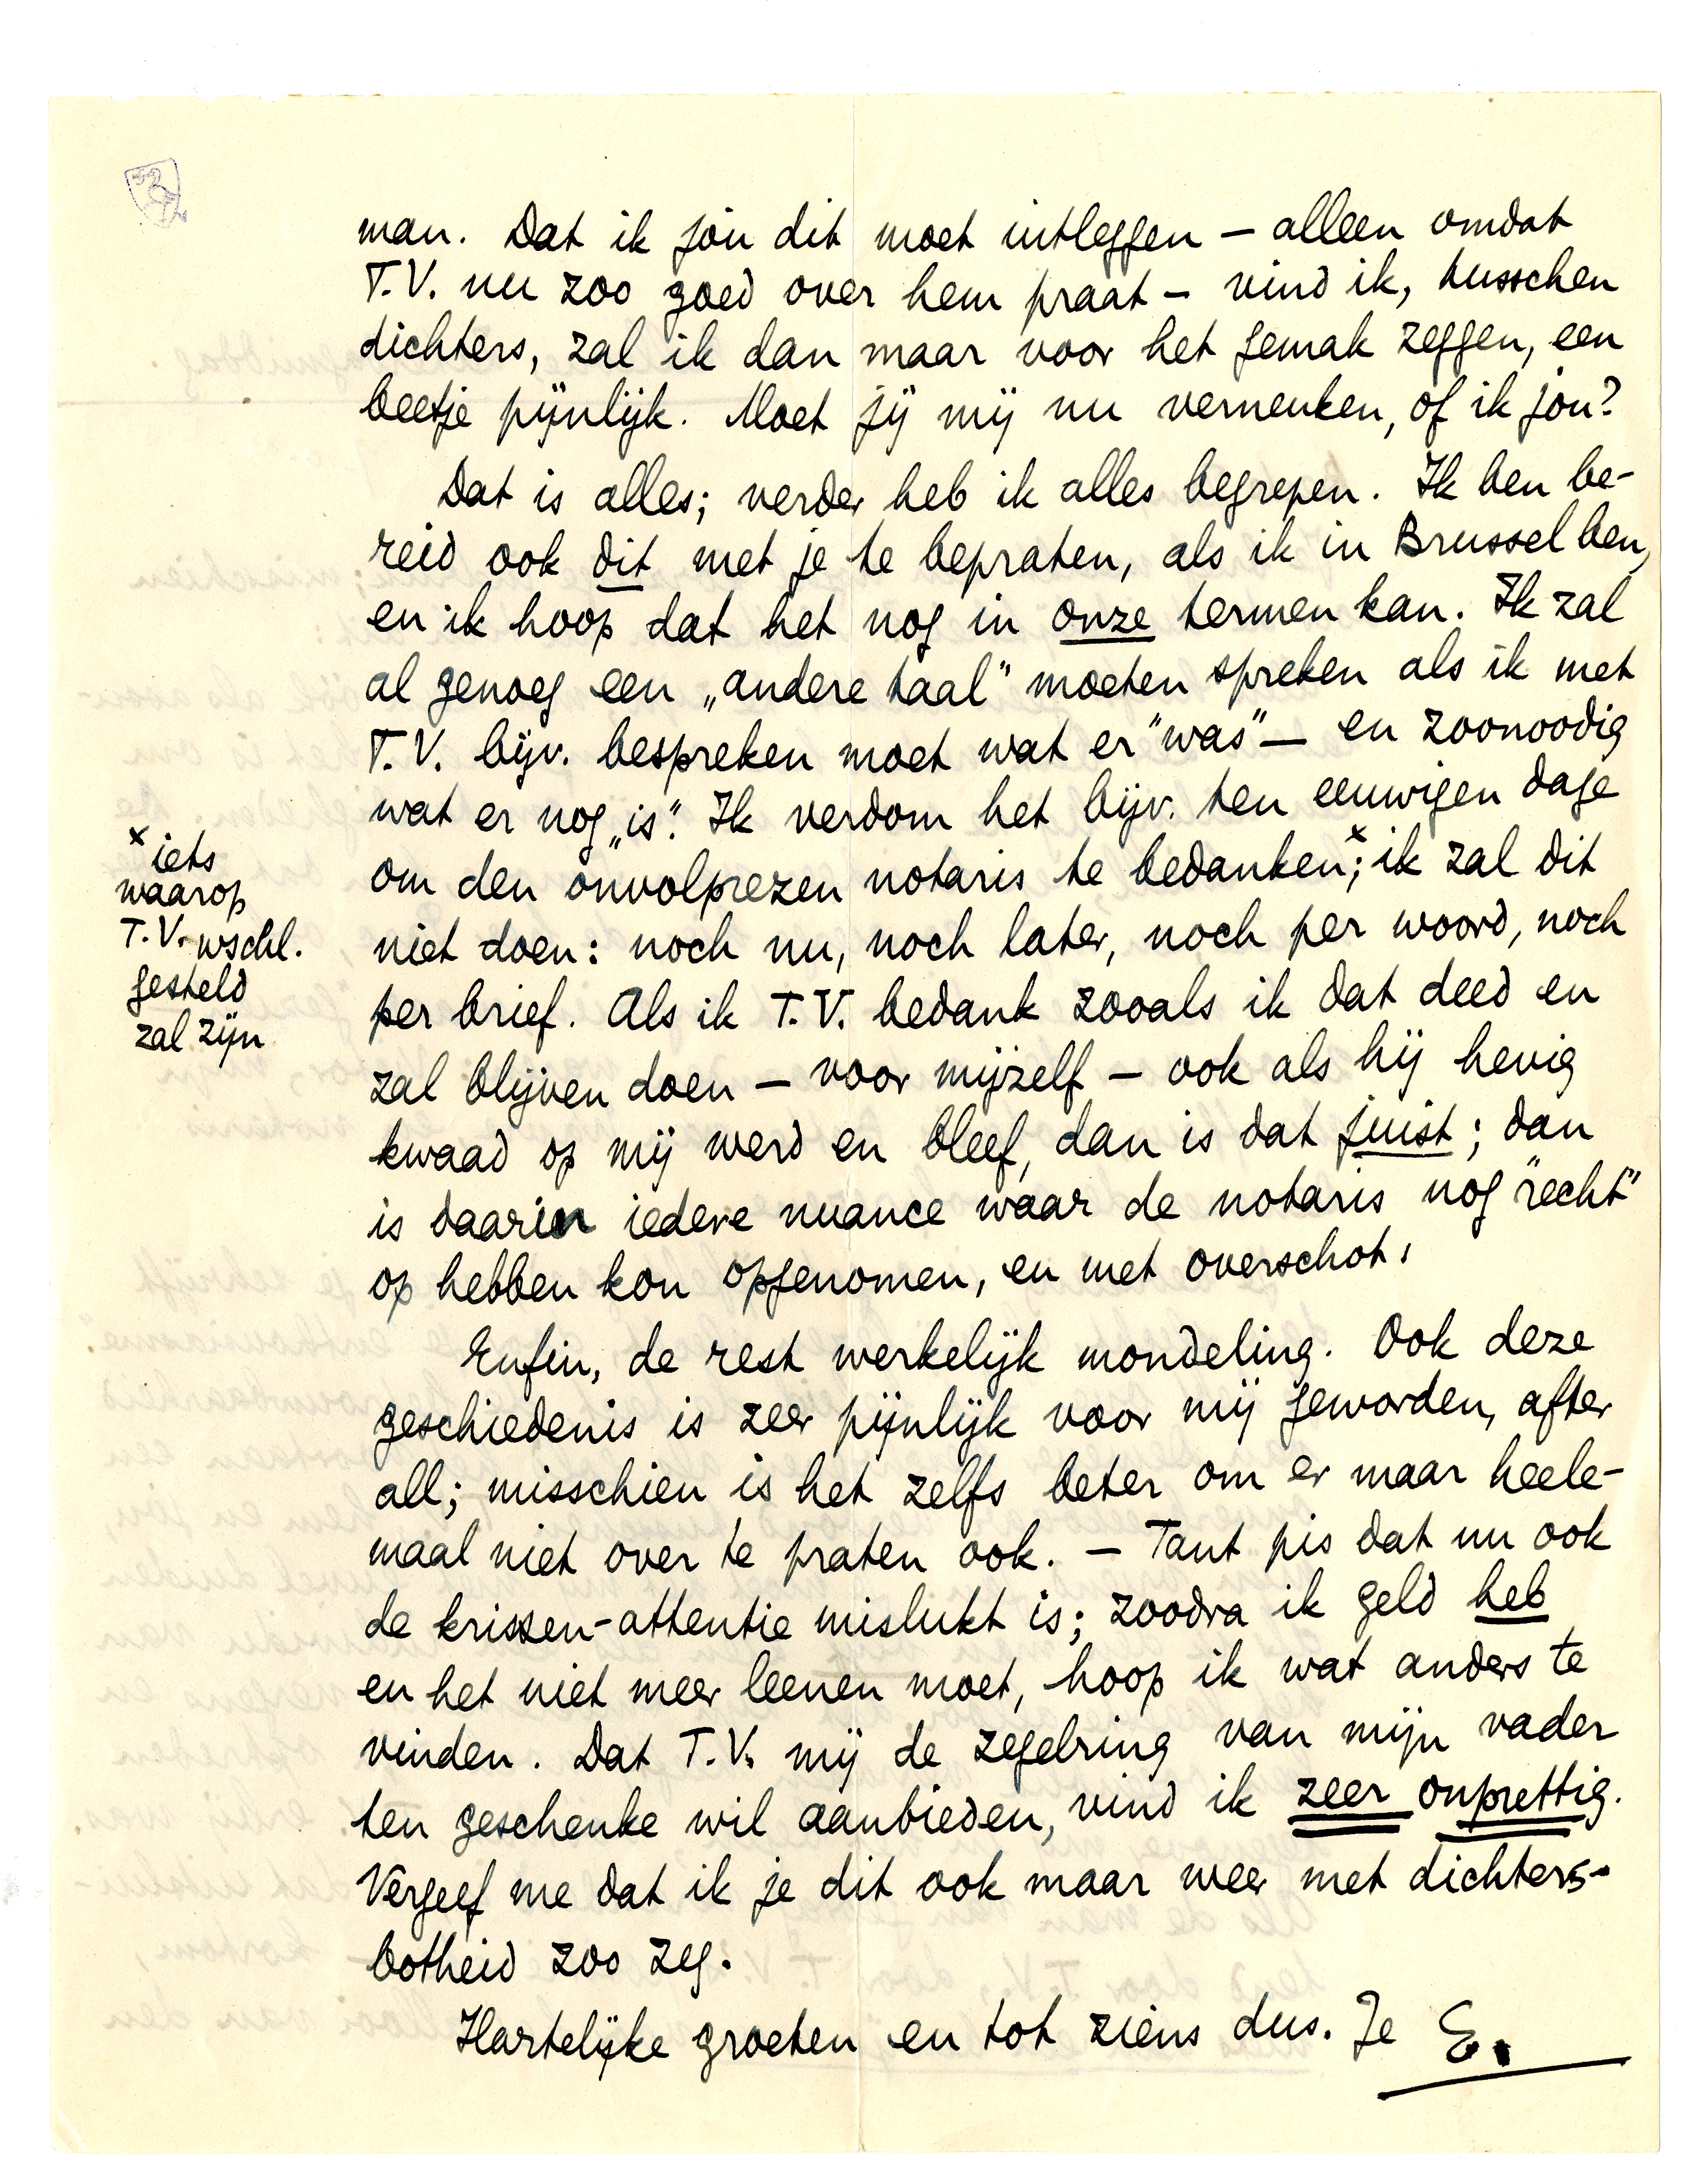 man. Dat ik jou dit moet uitleggen – alleen omdat
T.V. nu zoo goed over hem praat – vind ik, tusschen
dichters, zal ik dan maar voor het gemak zeggen, een
beetje pijnlijk. Moet jij mij nu verneuken, of ik jou?
Dat is alles; verder heb ik alles begrepen. Ik ben be-
reid ook dit met je te bepraten, als ik in Brussel ben,
en ik hoop dat het nog in onze termen kan. Ik zal
al genoeg een „andere taal” moeten spreken als ik met
T.V. bijv. bespreken moet wat er "was" – en zoonoodig
wat er nog „is”. Ik verdom het bijv. ten eeuwigen dage
om den onvolprezen notaris te bedanken x; ik zal dit
niet doen: noch nu, noch later, noch per woord, noch
per brief. Als ik T.V. bedank zooals ik dat deed en
zal blijven doen – voor mijzelf – ook als hij hevig
kwaad op mij werd en bleef, dan is dat juist; dan
is daarin iedere nuance waar de notaris nog "recht"
op hebben kon opgenomen, en met overschot!
Enfin, de rest werkelijk mondeling. Ook deze
geschiedenis is zeer pijnlijk voor mij geworden, after
all; misschien is het zelfs beter om er maar heele-
maal niet over te praten ook. – Tant pis dat nu ook
de krissen-attentie mislukt is; zoodra ik geld heb
en het niet meer leenen moet, hoop ik wat anders te
vinden. Dat T.V. mij de zegelring van mijn vader
ten geschenke wil aanbieden, vind ik zeer onprettig.
Vergeef me dat ik je dit ook maar weer met dichters-
botheid zoo zeg.
Hartelijke groeten en tot ziens dus. Je E.
x iets
waarop
T.V. wschl.
gesteld
zal zijn